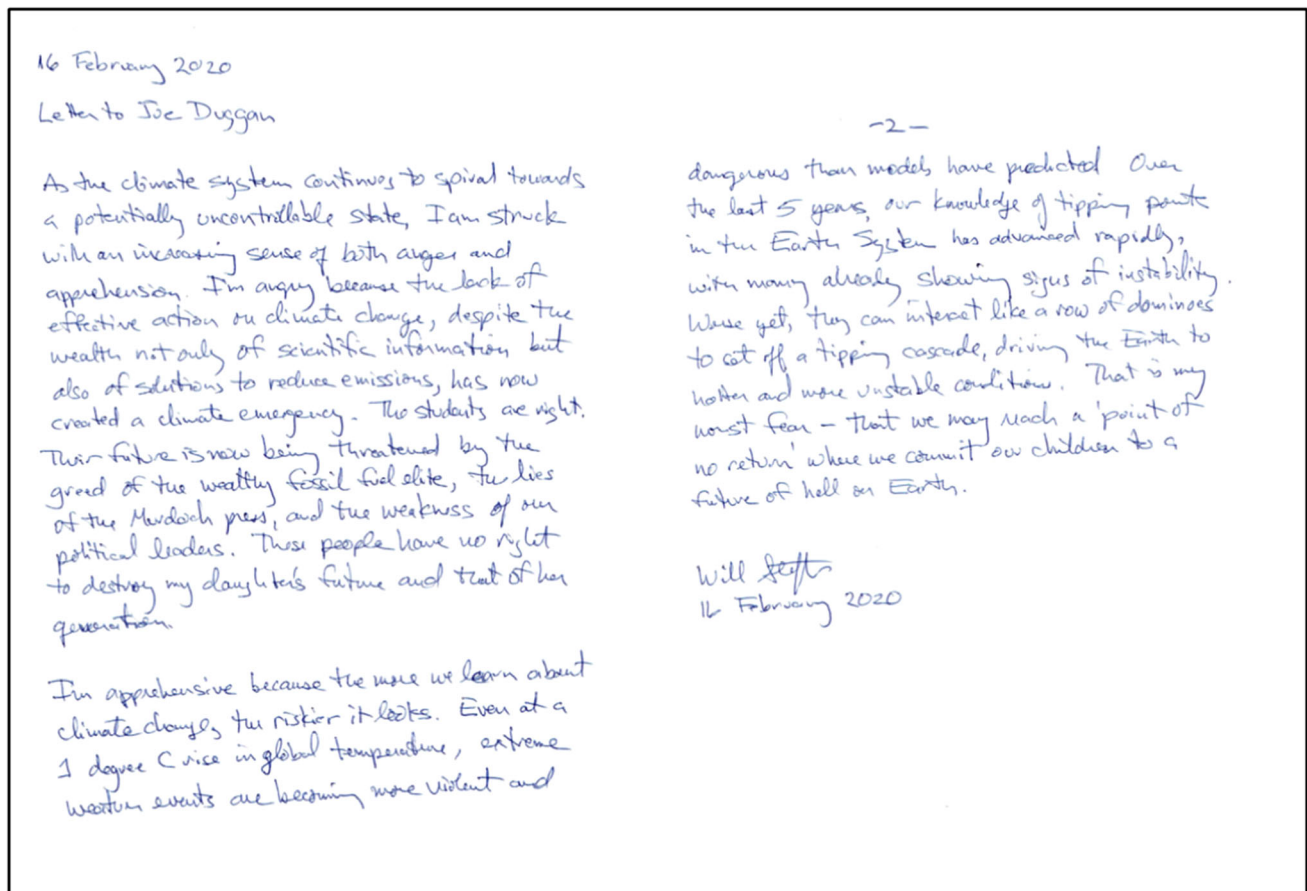 16 February 2020
Letter to Joe Duggan
As the climate system continues to spiral towards
a potentially uncontrollable state, I am struck
with an increasing sense of both anger and
apprehension. I'm angry because the lack of
effective action on climate change, despite the
wealth not only of scientific information but
also of solutions to reduce emissions, has now
created a climate emergency. The students are right.
Their future is now being threatened by the
greed of the wealthy fossil fuel elite, the lies
of the Murdoch press, and the weakness of our
political leaders. These people have no right
to destroy my daughter's future and that of her
generation.
I'm apprehensive because the more we learn about
climate change, the riskier it looks. Even at a
1 degree C rise in global temperature, extreme
weather events are becoming more violent and
-2-
dangerous than models have predicted Over
the last 5 years, our knowledge of tipping points
in the Earth System has advanced rapidly,
with many already showing signs of instability.
Worse yet, they can interact like a row of dominoes
to set off a tipping cascade, driving the Earth to
hotter and more unstable conditions. That is my
worst fear – that we may reach a 'point of
no return' where we commit our children to a
future of hell on Earth.
Will Steffen
16 February 2020